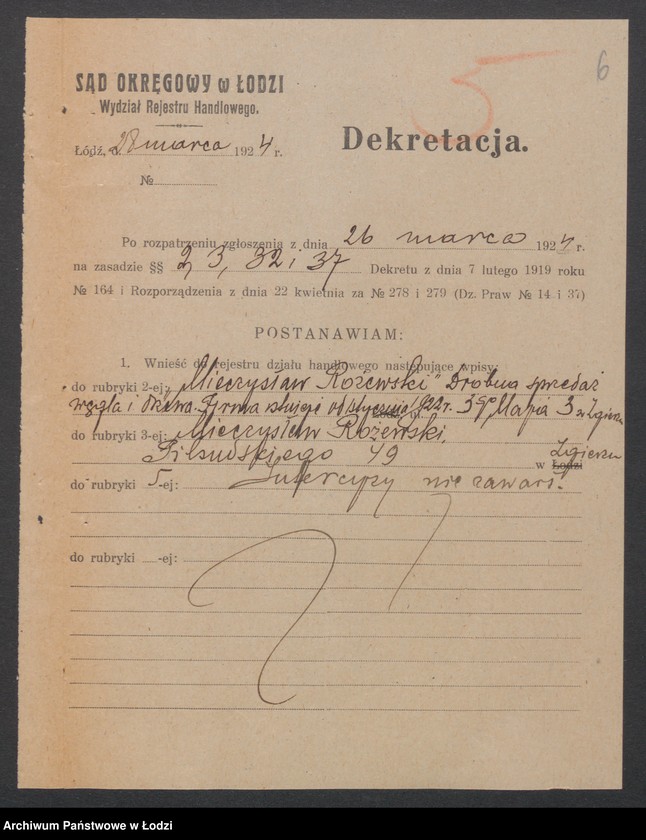 5
6
SĄD OKRĘGOWY w ŁODZI
Wydział Rejestru Handlowego.
Dekretacja.
Łódź, d. 28 marca 1924 r.
№
Po rozpatrzeniu zgłoszenia z dnia 26 marca 1924 r.
na zasadzie §§ 2, 3, 32 i 37 Dekretu z dnia 7 lutego 1919 roku
№ 164 i Rozporządzenia z dnia 22 kwietnia za № 278 i 279 (Dz. Praw № 14 i 37)
POSTANAWIAM:
1. Wnieść do rejestru działu handlowego następujące wpisy:
do rubryki 2-ej: „Mieczysław Rożewski" Drobna sprzedaż
węgla i drzewa. Firma istnieje od stycznia 1922 r. 3go Maja 3 w Zgierzu
do rubryki 3-ej: Mieczysław Rożewski,
Piłsudskiego 49 w Łodzi Zgierzu
do rubryki 5-ej: Intercyzy nie zawarł.
do rubryki -ej:
Archiwum Państwowe w Łodzi